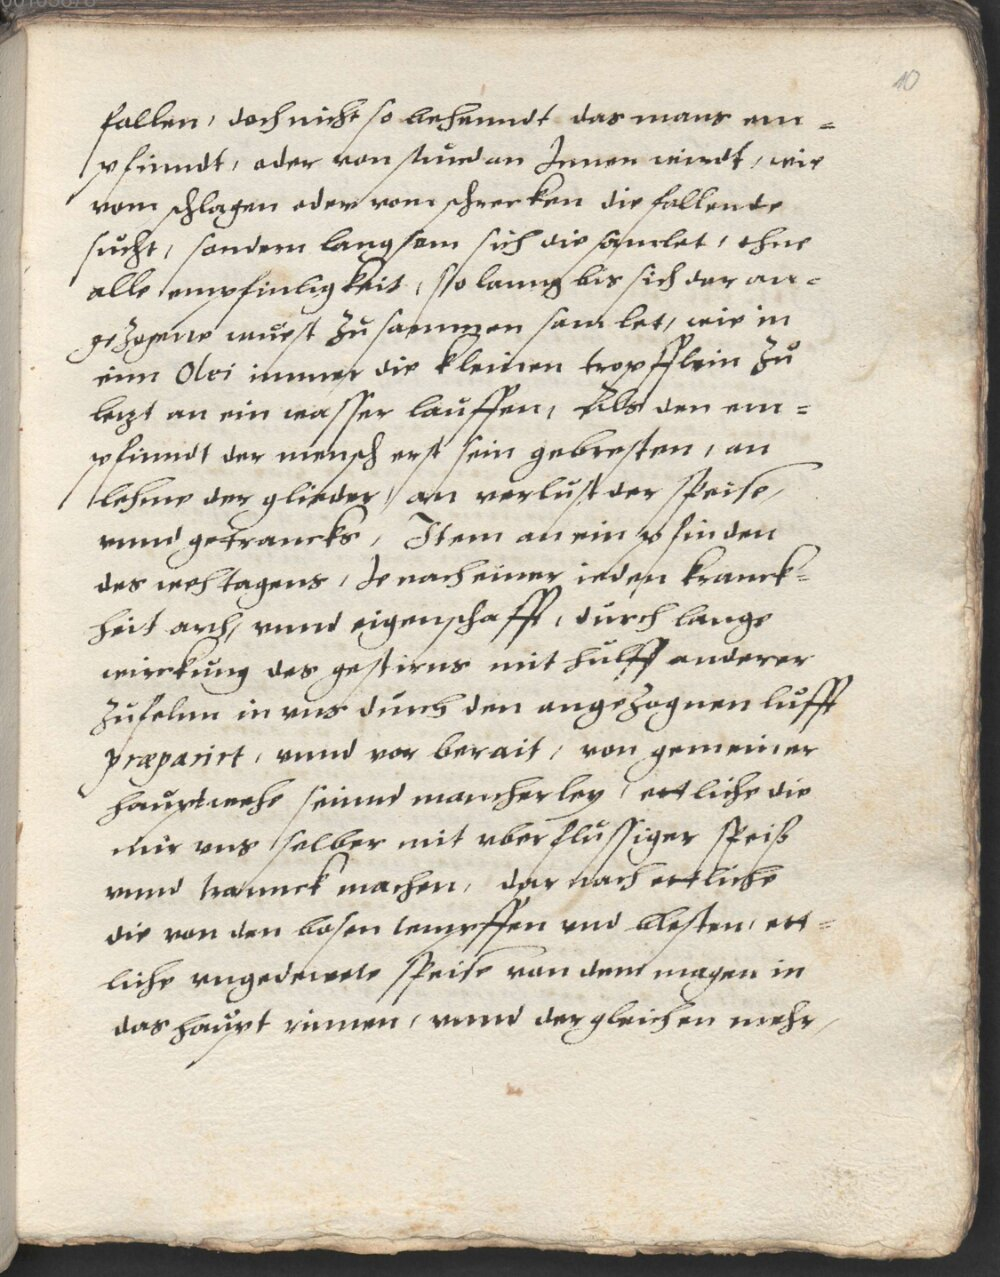 10
fallen, doch nicht so behenndt das mans em=
pfinndt, oder von stund an Innen wirdt, wie
vom schlagen oder vom schrecken die fallende
sucht, sondern langsam sich die samlet, ohne
alle empfinligkeit, so lanng bis sich der an=
gezogene wuest zusammen samlet, wie in
eim immer die kleinen tropfflein zu
letzt an ein wasser lauffen, Als den em=
pfinndt der mensch erst sein gebresten, an
lehme der glieder, an verlust der speise,
vnnd getrancks, Item an ein pfinden
des wehtagens, Je nach einer ieden kranck=
heit arth, vnnd eigenschafft, durch lange
wirckung des gestirns mit hulff anderer
zufelen in vns durch den angezognen lufft
præparirt, vnnd vor berait, von gemeiner
hauptwehe seinnd mancherley, ettliche die
wir vns selber mit vberflussiger speiß
vnnd tranck machen, dar nach ettliche
die von den bosen tempffen vnd blesten, ett=
liche vngedewete speise von dem magen in
das haupt rinnen, vnnd der gleichen mehr,